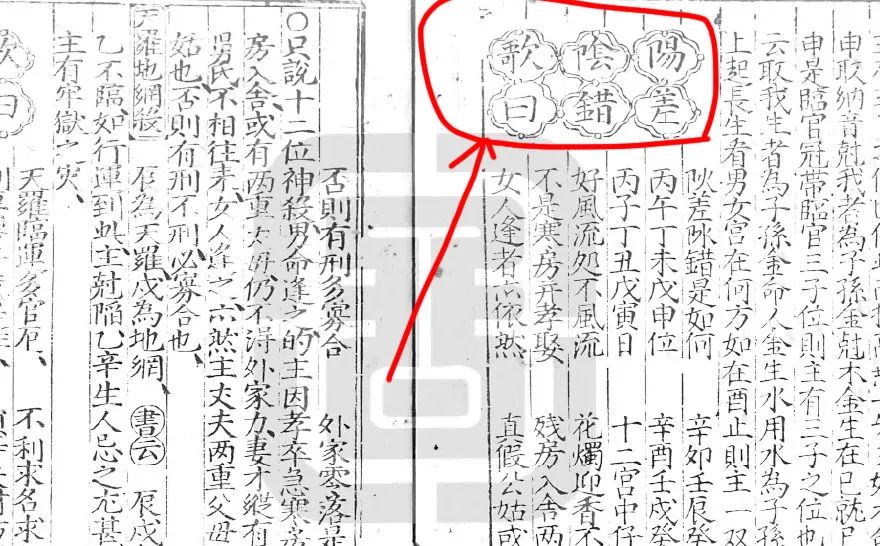 申取納音尅我者為子孫金尅木金生在巳就巳
申是臨官冠帶臨官三子位則主有三子之位也
云取我生者為子孫金命人金生水用水為子孫
上起長生看男女宮在何方如在酉止則主一双
陽差
陰錯
歌曰
阦差阥錯是如何 辛卯壬辰癸
丙午丁未戊申位 辛酉壬戌癸
丙子丁丑戊寅日 十二宮中仔
好風流処不風流 花燭迎香不
不是寒房并孝娶 残房入舍两
女人逢者亦依然 真假公姑或
否則有刑多寡合 外家零落是
〇只說十二位神殺男命逢之的主因孝卒急寒房
房入舍或有两重丈母仍不淂外家力妻才縱有
舅氏不相往来女人逢之亦然主丈夫两重父母
姑也否則有刑不刑必寡合也
天羅地網殺 辰為天羅戌為地網 書云 辰戌
乙不臨如行運到此主尅陷乙辛生人忌之尤甚
主有牢獄之灾
天羅臨運多官厄 不利求名求
歌曰